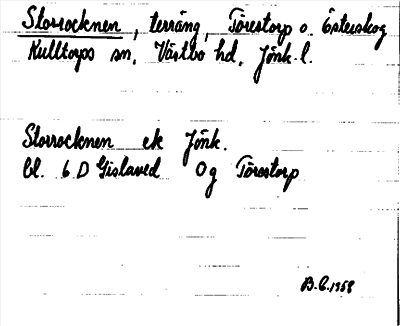 Storrocknen, terräng, Törestorp o. Österskog
Kulltorps sn, Västbo hd, Jönk. l.
Storrocknen ek Jönk.
bl. 6 D Gislaved 0g Törestorp
B.C. 1958